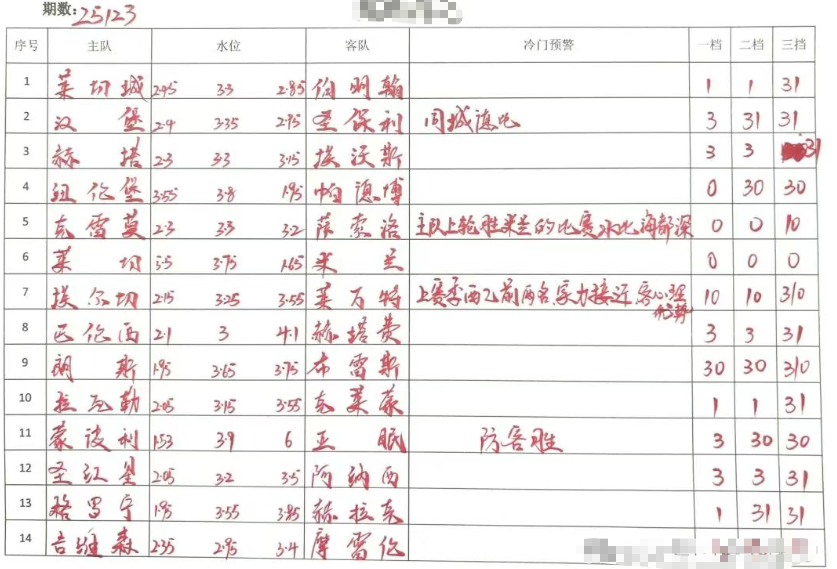 期数:25123
序号 主队 水位 客队 冷门预警 一档 二档 三挡
1 莱切城 2.45 3.3 2.85 伯明翰 1 1 31
2 汉堡 2.4 3.35 2.75 圣保利 同城德比 3 31 31
3 赫塔 2.3 3.3 3.15 埃沃斯 3 3 31
4 纽伦堡 3.55 3.8 1.95 帕德博 0 30 30
5 克雷莫 2.3 3.3 3.2 萨索洛 主队上轮胜米兰的比赛水比海都深 0 0 10
6 莱切 5.5 3.75 1.65 米兰 0 0 0
7 埃尔切 2.15 3.25 3.55 莱万特 上赛季西乙前两名实力接近 客心理优势 10 10 310
8 巴伦西 2.1 3 4.1 赫塔费 3 3 31
9 朗斯 1.95 3.65 3.75 布雷斯 30 30 310
10 拉瓦勒 2.05 3.15 3.55 克莱蒙 1 1 31
11 蒙彼利 1.53 3.9 6 亚眠 防客胜 3 30 30
12 圣红星 2.05 3.2 3.5 阿纳西 3 3 31
13 格罗宁 1.95 3.55 3.85 赫拉克 1 31 31
14 吉维森 2.35 2.95 3.4 摩雷伦